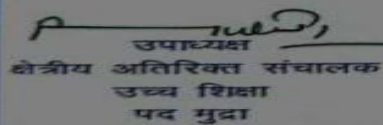 उपाध्यक्ष
क्षेत्रीय अतिरिक्त संचालक
उच्च शिक्षा
पद मुद्रा